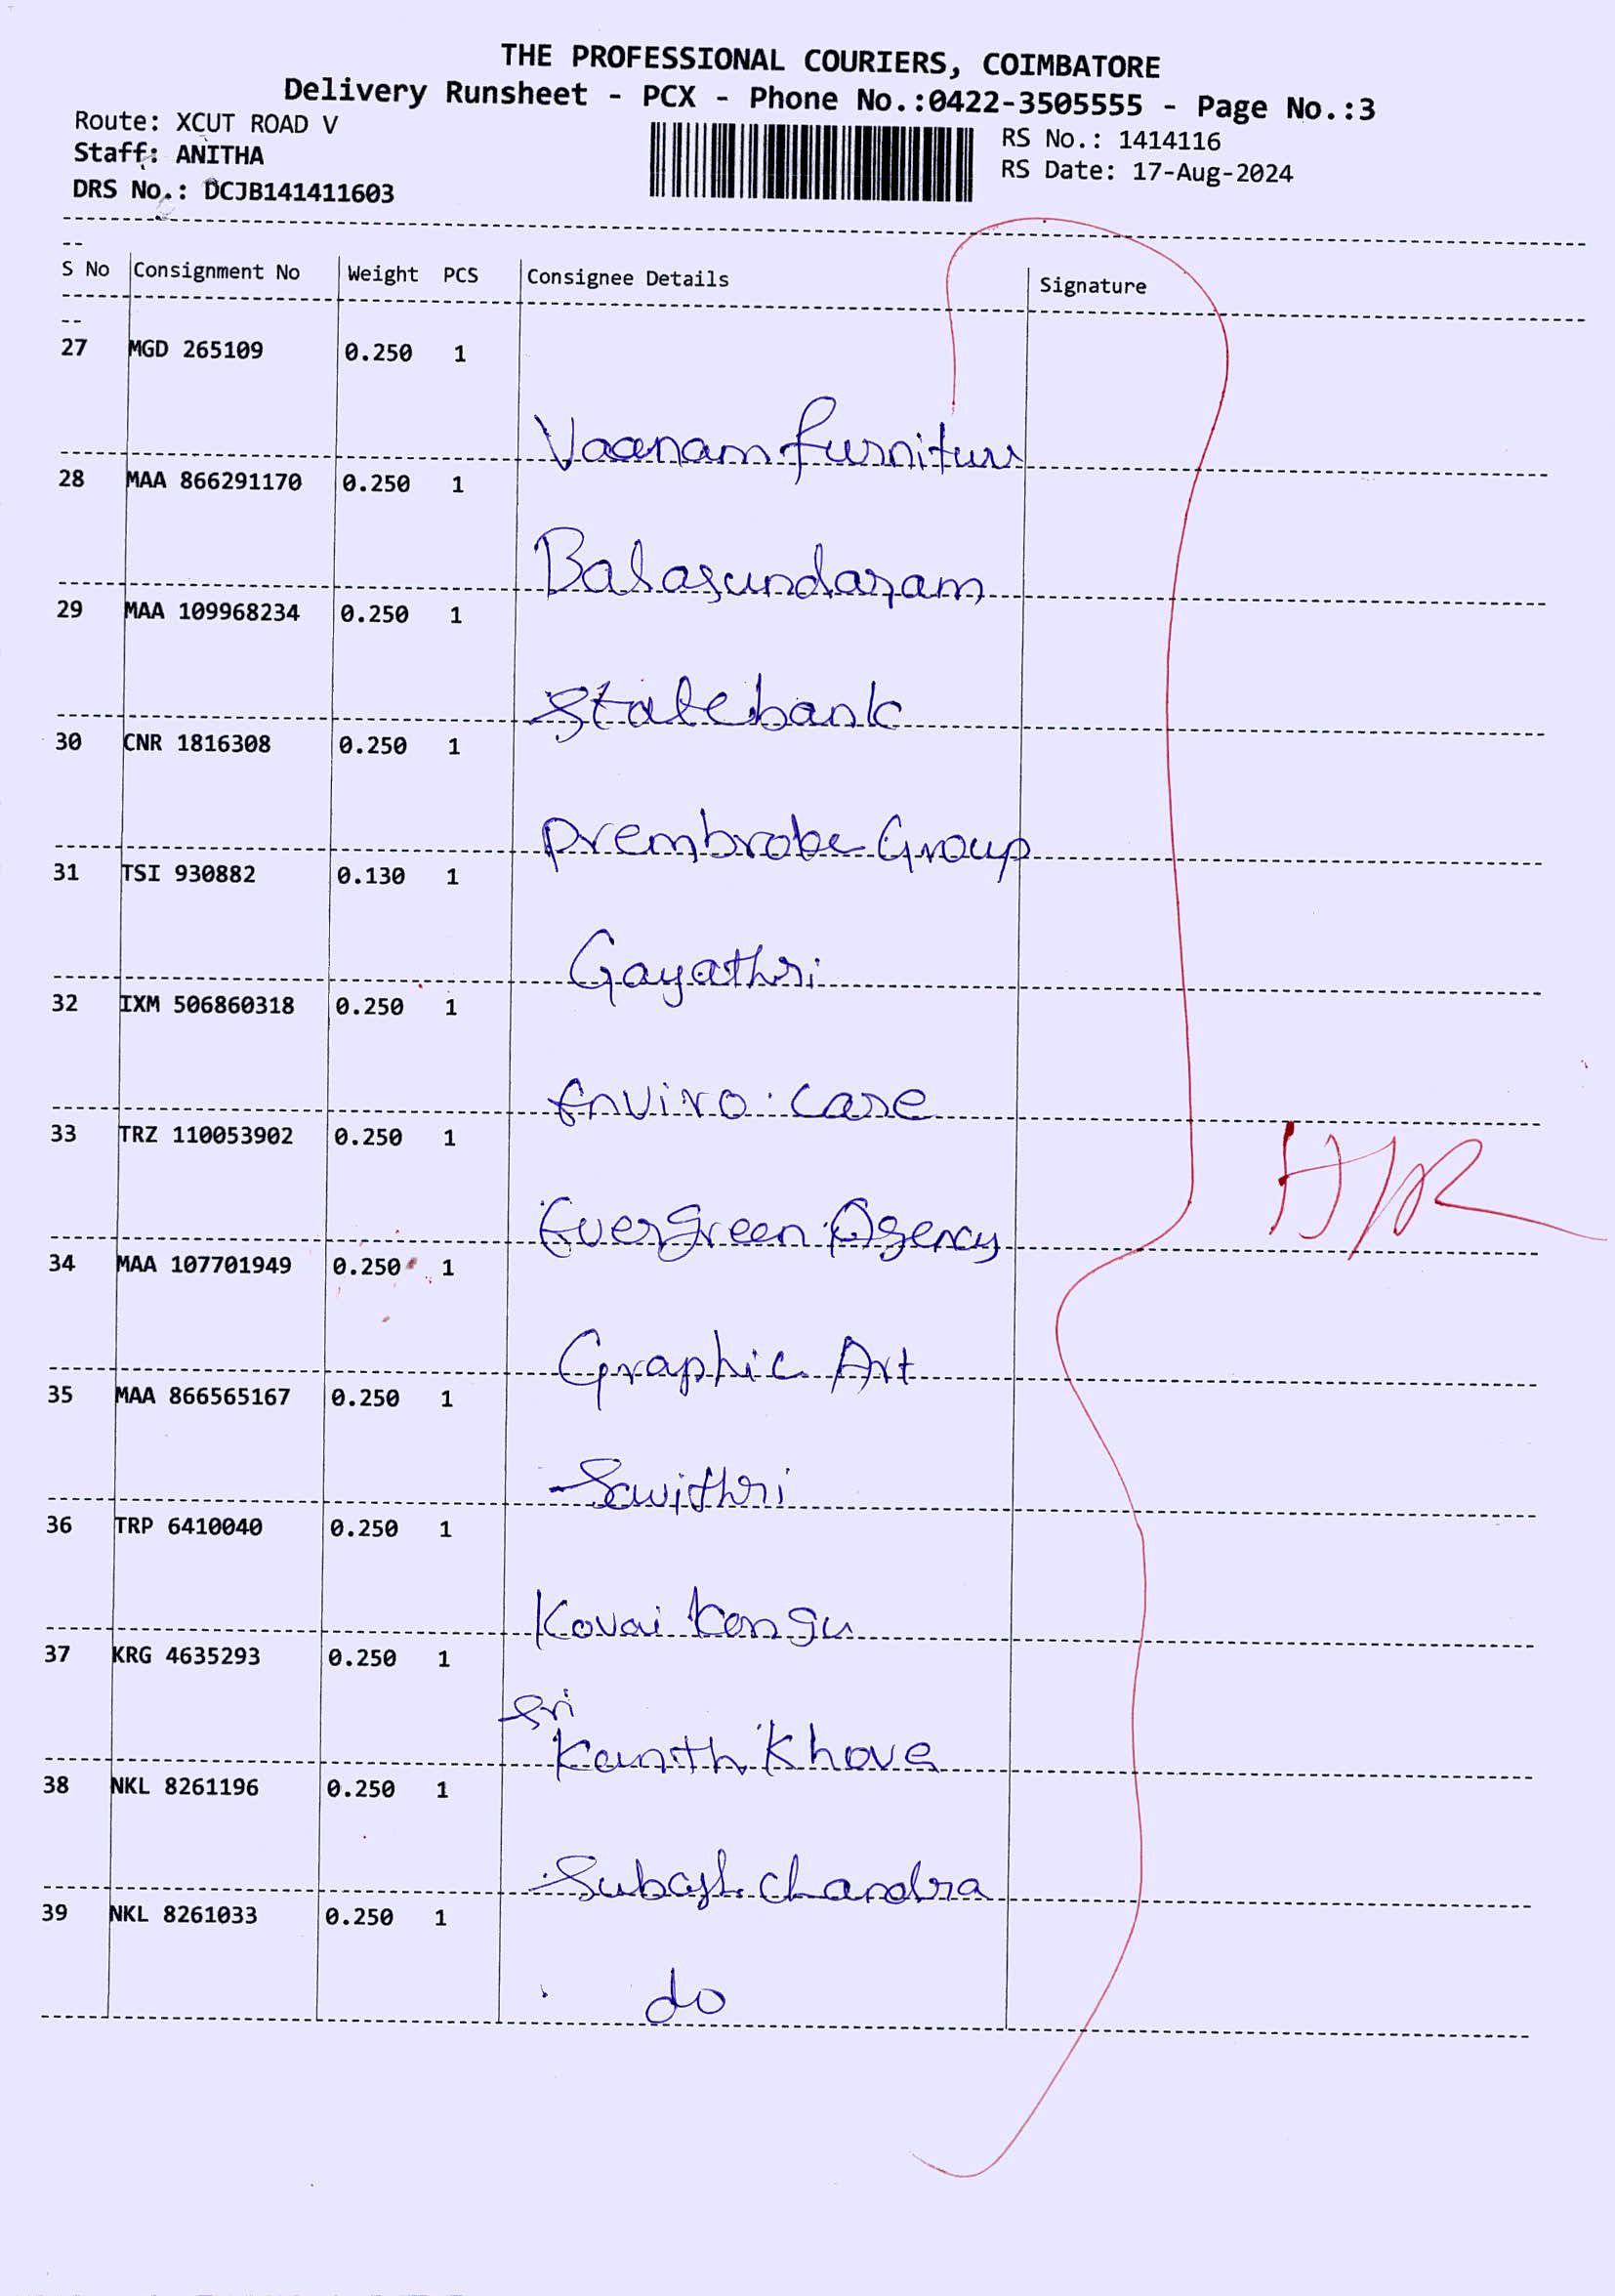 THE PROFESSIONAL COURIERS, COIMBATORE
Delivery Runsheet - PCX - Phone No.:0422-3505555 - Page No.:3
Route: XCUT ROAD V
Staff: ANITHA
DRS No.: DCJB141411603
RS No.: 1414116
RS Date: 17-Aug-2024
S No Consignment No Weight PCS Consignee Details Signature
27 MGD 265109 0.250 1
Vaanam furniture
28 MAA 866291170 0.250 1
Balasundaram
29 MAA 109968234 0.250 1
State bank
30 CNR 1816308 0.250 1
Prembrobe Group
31 TSI 930882 0.130 1
Gayathri
32 IXM 506860318 0.250 1
Enviro care
33 TRZ 110053902 0.250 1
Evergreen Agency
34 MAA 107701949 0.250 1
Graphic Art
35 MAA 866565167 0.250 1
Savithri
36 TRP 6410040 0.250 1
Kovai Kongu
37 KRG 4635293 0.250 1
Sri
Kanth Khove
38 NKL 8261196 0.250 1
Subash chandra
39 NKL 8261033 0.250 1
do